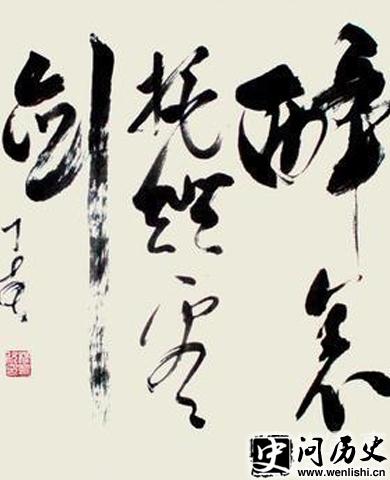 醉裏
挑燈看
剑
丁亥
史 问历史
www.wenlishi.cn